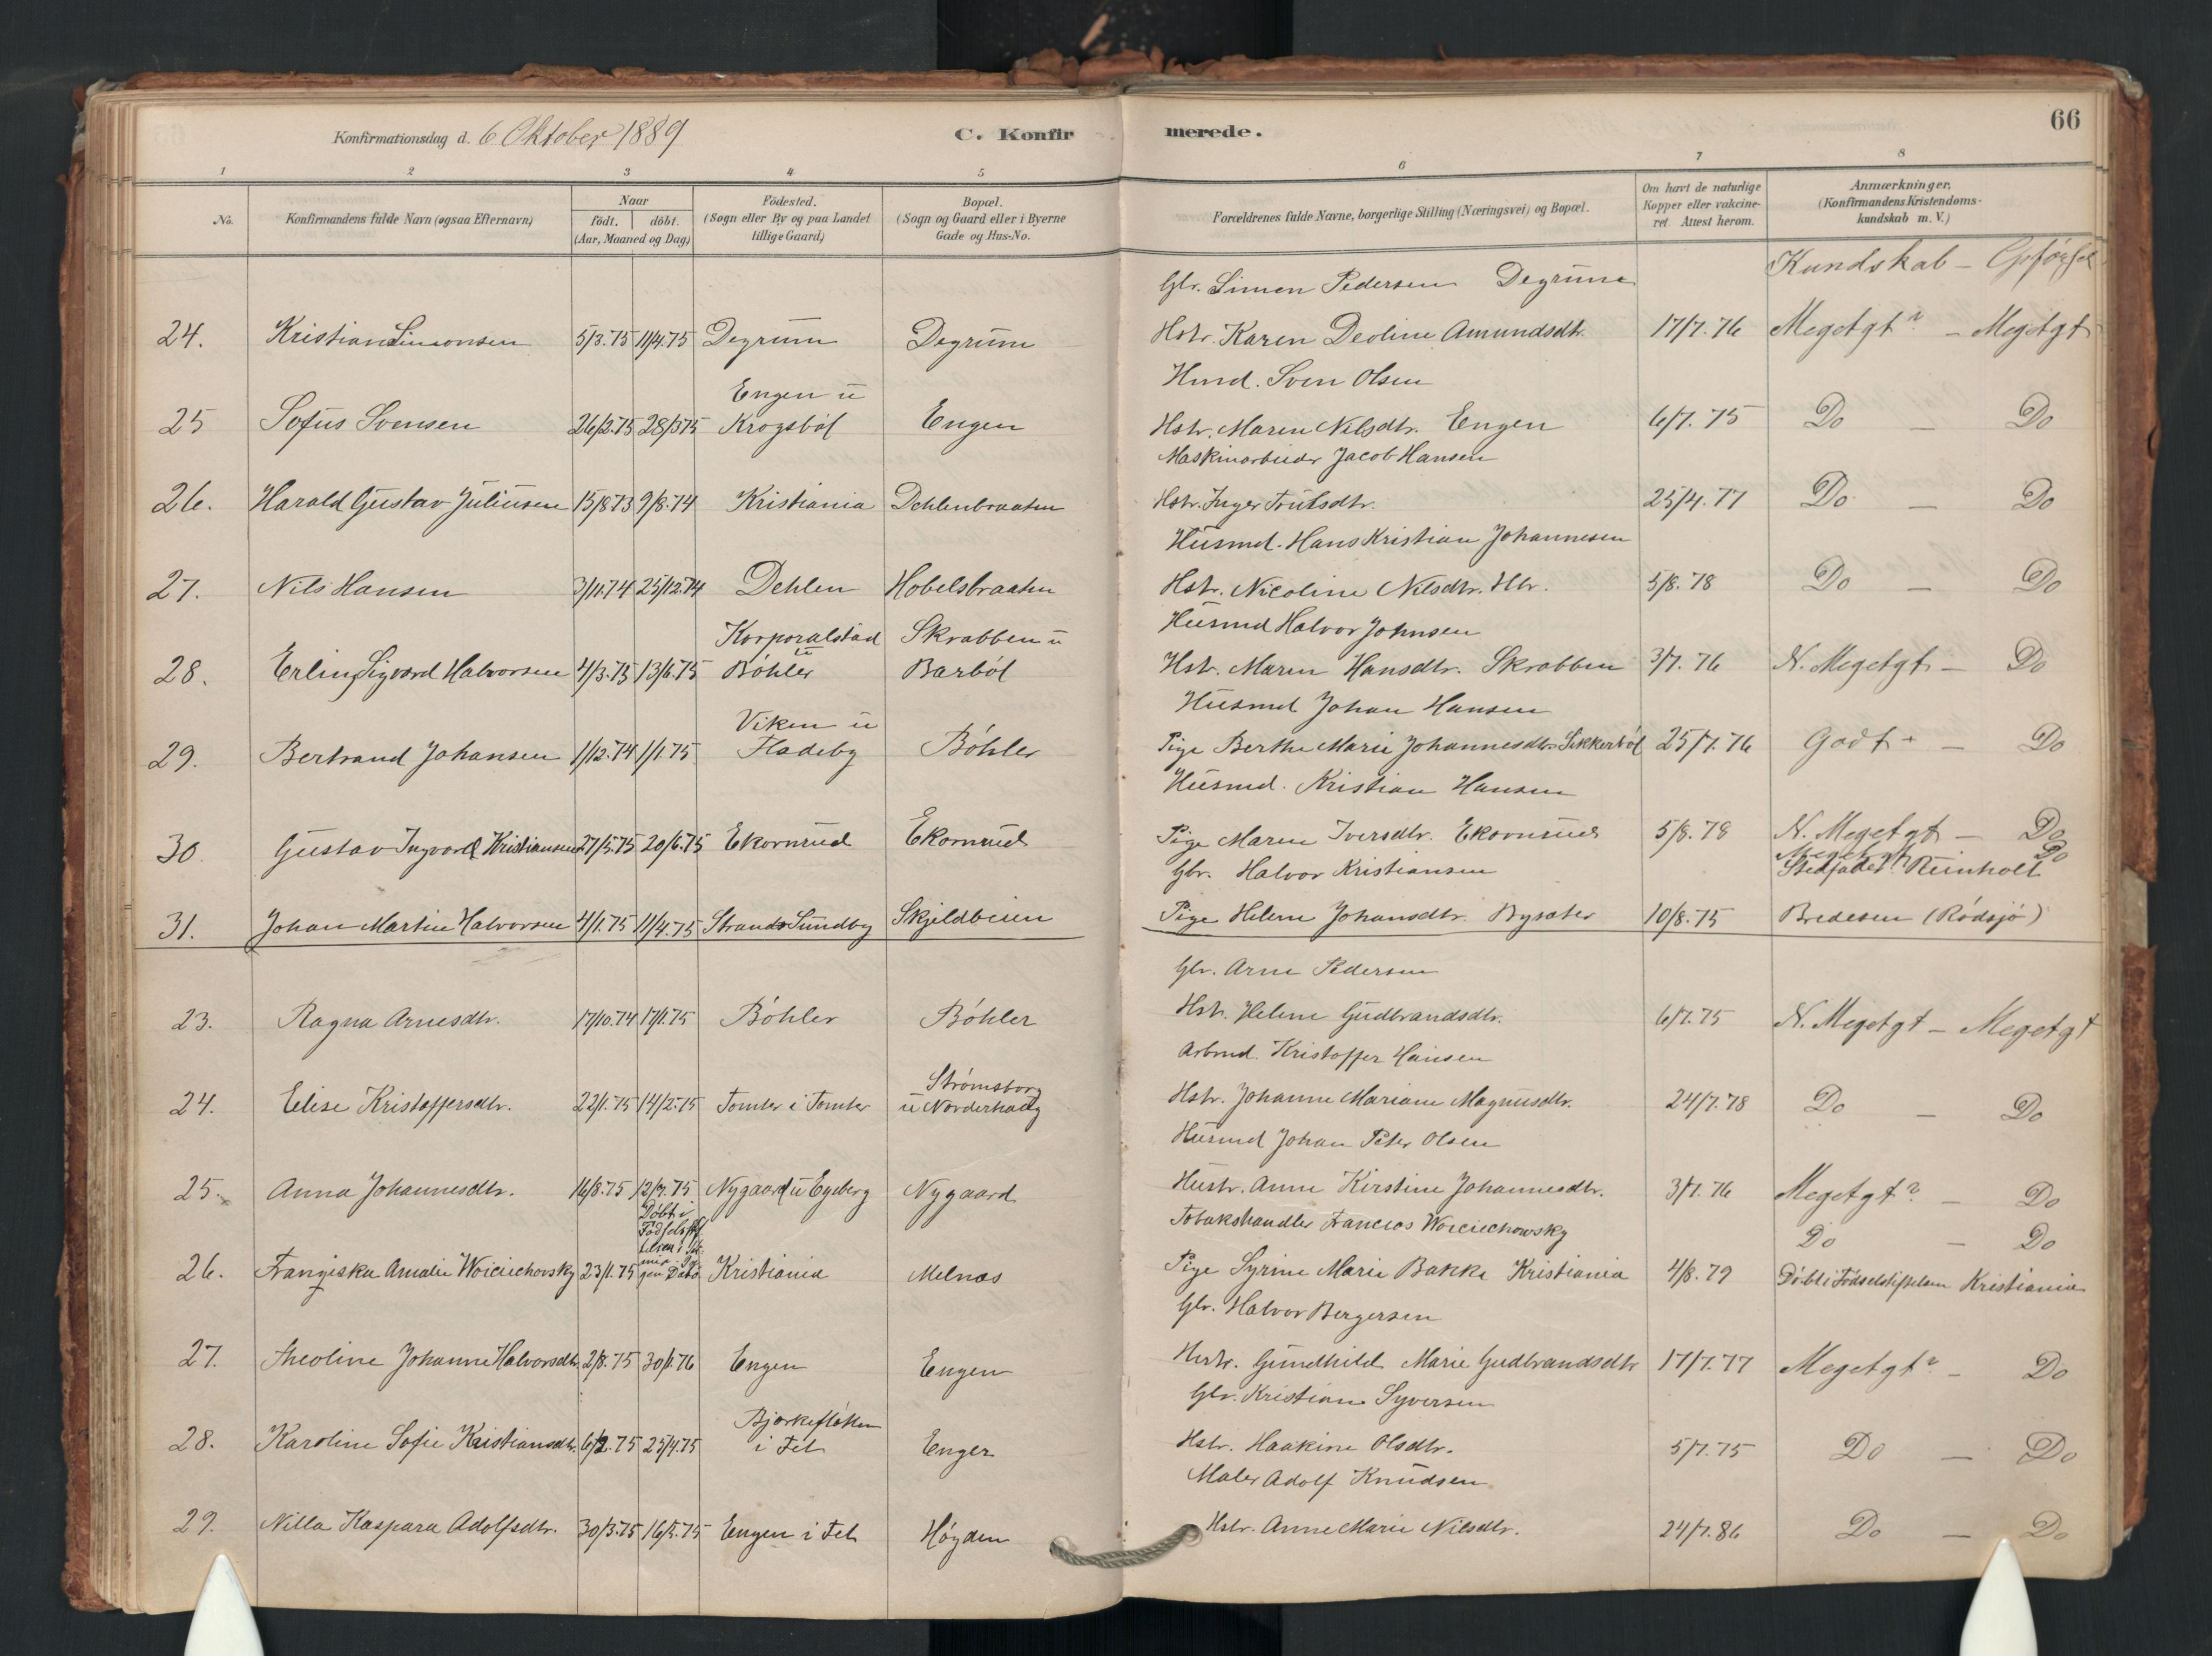 Konfirmationsdag d. 6 Oktober 1889
C. Konfirmerede.
66
1 2 3 4 5 6 7 8
No.
Konfirmandens fulde Navn (ogsaa Efternavn)
Naar
födt. döbt.
(Aar, Maaned og Dag)
Födested.
(Sogn eller By og paa Landet
tillige Gaard)
Bopæl.
(Sogn og Gaard eller i Byerne
Gade og Hus-No.
Forældrenes fulde Navne, borgerlige Stilling (Næringsvei) og Bopæl.
Om havt de naturlige
Kopper eller vakcine-
ret. Attest herom.
Anmærkninger,
(Konfirmandens Kristendoms-
kundskab m. V.)
Kundskab - Opførsel
Gbr. Simen Pedersen Degrum
24. Kristian Simonsen 5/3.75 11/4.75 Degrum Degrum Hstr. Karen Deoline Amundsdtr. 17/7.76 Megetgt? - Megetgt
Engen u Husmd. Sven Olsen
25 Sofus Svensen 26/2.75 28/3 75 Krogsböl Engen Hstr. Maren Nilsdtr. Engen 6/7.75 Do - Do
Maskinarbeider Jacob Hansen
26. Harald Gustav Juliusen 15/8 73 9/8.74 Kristiania Dehlenbraaten Hstr. Inger Trulsdtr. 25/4.77 Do - Do
Husmd. Hans Kristian Johannesen
27. Nils Hansen 3/11.74 25/12.74 Dehlen Hobelsbraaten Hstr. Nicoline Nilsdtr. Hbr. 5/8.78 Do - Do
Korporalstad u Skrabben u Husmd Halvor Johnsen
28. Erling Sigvard Halvorsen 4/3.75 13/6.75 Böhler Barböl Hstr. Maren Hansdtr. Skrabben 3/7.76 N. Megetgt - Do
Viken u Husmd Johan Hansen
29. Bertrand Johansen 1/12.74 1/1.75 Fladeby Böhler Pige Berthe Marie Johannesdtr. Sikkerböl 25/7.76 Godt + - Do
Husmd. Kristian Hansen
30. Gustav Ingvard Kristiansen 27/5.75 20/6.75 Ekornrud Ekornrud Pige Maren Iversdtr. Ekornrud 5/8.78 N. Megetgt - Do
Megetgt Do
Gbr. Halvor Kristiansen Stedfader: Reinholt
31. Johan Martin Halvorsen 4/1.75 11/4.75 Strands Sundby Skjeldbeien Pige Helene Johansdtr. Bysæter 10/8.75 Bredesen (Rödsjö)
Gbr. Arne Pedersen
23. Ragna Arnesdtr. 17/10.74 17/1.75 Böhler Böhler Hstr. Helene Gudbrandsdtr. 6/7.75 N. Megetgt - Megetgt
Strømsborg Arbmd. Kristoffer Hansen
24. Elise Kristoffersdtr. 22/1.75 14/2.75 Tomter i Tomter u Norderhaug Hstr. Johanne Mariane Magnusdtr. 24/7.78 Do - Do
Husmd Johan Peter Olsen
25. Anna Johannesdtr. 16/8.75 12/9.75 Nygaard u Egeberg Nygaard Hustr. Anne Kirstine Johannesdtr. 3/7.76 Megetgt? - Do
Döbt i
Födselsstif
telsen i
Tobakshandler Francios Woiciechowsky Do - Do
26. Franziska Amalie Woiciechovsky 23/1.75 Kristiania Melnæs Pige Syrine Marie Bakke Kristiania 4/8.79 Döbt i Födselstiftelsen Kristiania
Gbr. Halvor Bergersen
27. Theoline Johanne Halvorsdtr. 2/8.75 30/1.76 Engen Engen Hustr. Gundhild Marie Gudbrandsdtr 17/7.77 Megetgt? - Do
Bjørkefløtten Gbr. Kristian Syversen
28. Karoline Sofie Kristiansdtr. 6/2.75 25/4.75 i Fet Enger Hstr. Haakine Olsdtr. 5/7.75 Do - Do
Maler Adolf Knudsen
29. Nilla Kaspara Adolfsdtr. 30/3.75 16/5.75 Engen i Fet Høgden Hstr. Anne Marie Nilsdtr. 24/7.86 Do - Do